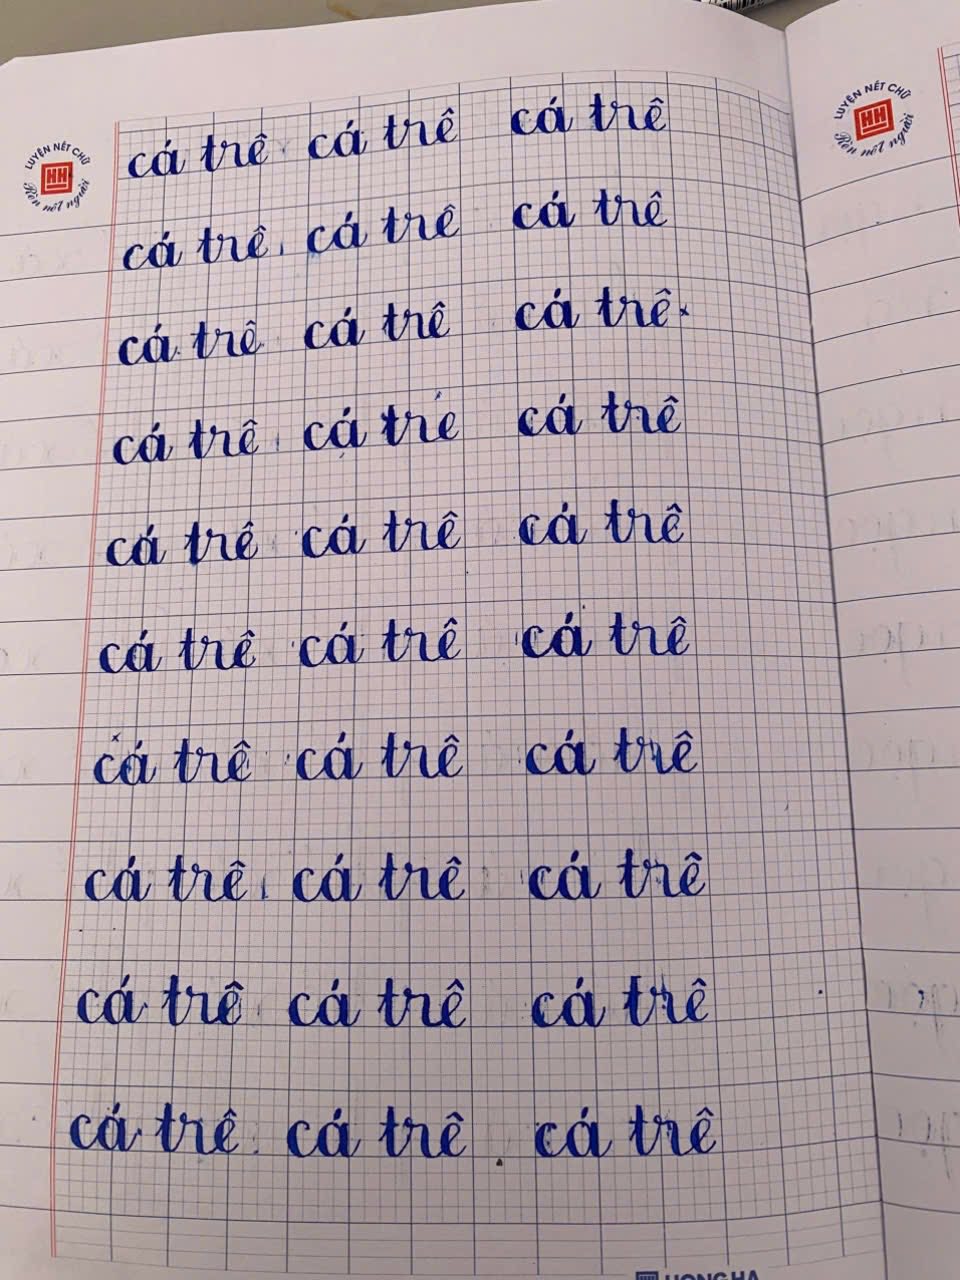 LUYỆN NÉT CHỮ
HH
Rèn nết người
LUYỆN NÉT CHỮ
HH
Rèn nết người
cá trê cá trê cá trê
cá trê cá trê cá trê
cá trê cá trê cá trê
cá trê cá tré cá trê
cá trê cá trê cá trê
cá trê cá trê cá trê
cá trê cá trê cá trê
cá trê cá trê cá trê
cá trê cá trê cá trê
cá trê cá trê cá trê